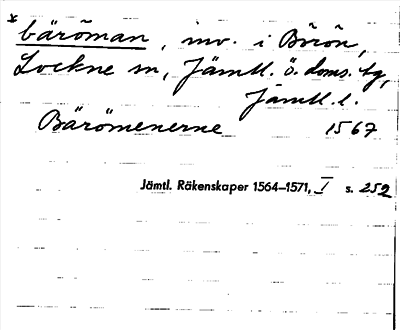 * bäröman, inv. i Börön,
Lockne sn, Jämtl. ö. doms. tg,
Jämtl. l.
Bärömenerne 1567
Jämtl. Räkenskaper 1564–1571, I s. 252